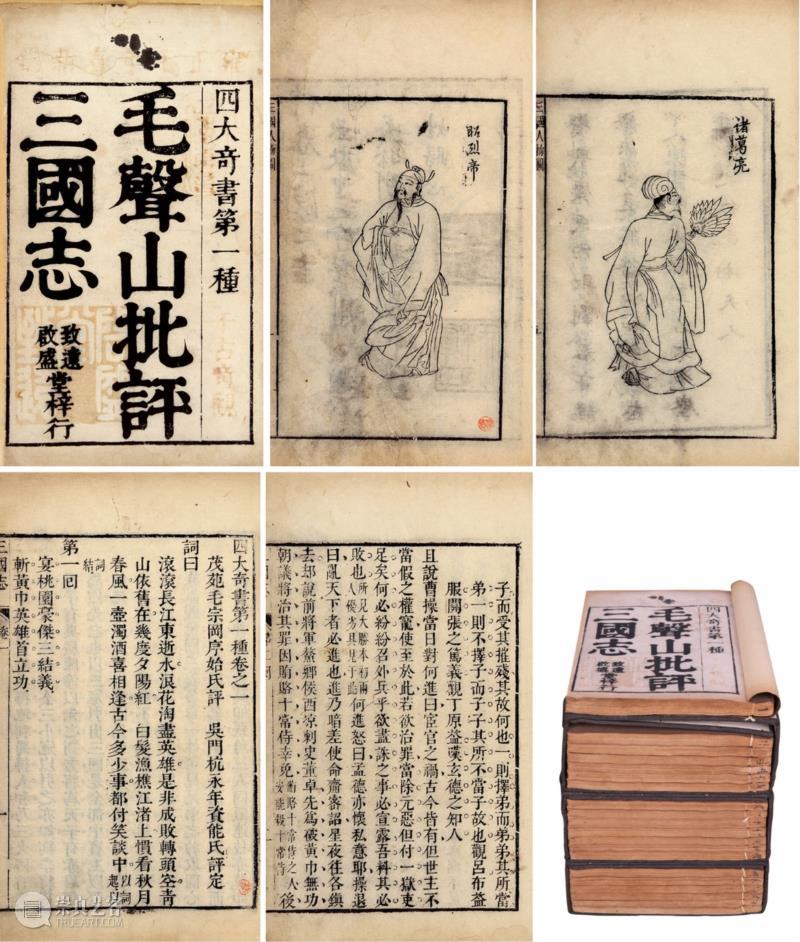 四大奇書第一種
毛聲山批評
三國志
致遠
啟盛
堂梓行
昭烈帝
三國人物圖
諸葛亮
三國人物圖
四大奇書第一種卷之一
茂苑毛宗岡序始氏評　吳門杭永年資能氏評定
詞曰
滾滾長江東逝水浪花淘盡英雄是非成敗轉頭空青
山依舊在幾度夕陽紅　白髮漁樵江渚上慣看秋月
春風一壺濁酒喜相逢古今多少事都付笑談中以詞起以詞
結
第一回
宴桃園豪傑三結義
斬黃巾英雄首立功
三國志　卷一
子而受其摧殘其故何也一則擇弟而弟弟其所當
弟一則不擇子而子子其所不當子故也觀呂布益
服關張之篤義觀丁原益嘆玄德之知人
且說曹操當日對何進曰宦官之禍古今皆有但世主不
當假之權寵使至於此若欲治罪當除元惡但付一獄吏
足矣何必紛紛召外兵乎欲盡誅之事必宣露吾料其必
敗也何進怒曰孟德亦懷私意耶操退
曰亂天下者必進也進乃暗差使命齎密詔星夜往各鎮
去却說前將軍鰲鄉侯西涼刺史董卓先為破黃巾無功
朝議將治其罪因賄賂十常侍幸免後
四大奇書第一種
毛聲山批評
三國志
致遠
啟盛
堂梓行
崇真艺客
TRUEART.COM